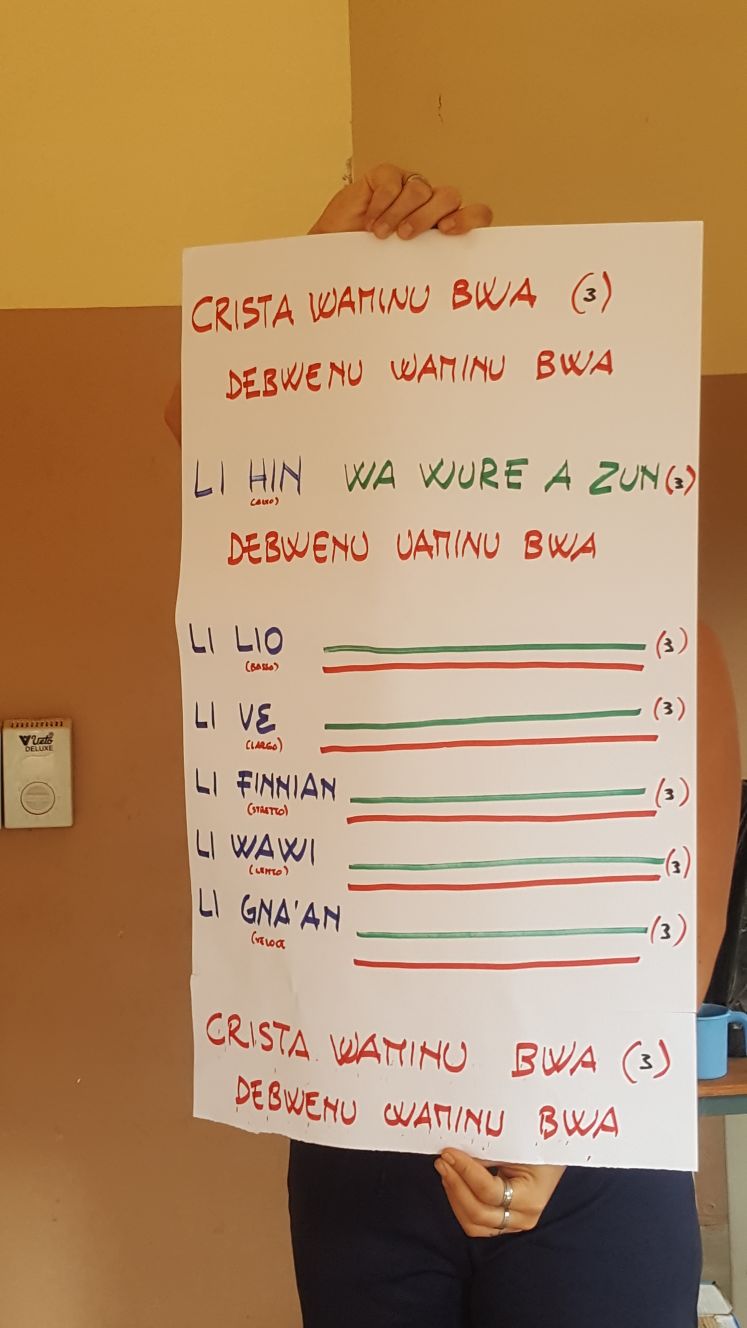 CRISTA WAMINU BWA (3)
DEBWENU WAMINU BWA
LI HIN WA WURE A ZUN (3)
DEBWENU UAMINU BWA
LI LIO (3)
(BASSO)
LI VE (3)
(LARGO)
LI FINNIAN (3)
(STRETTO)
LI WAWI (3)
(LENTO)
LI GNA'AN (3)
(VELOCE
CRISTA WAMINU BWA (3)
DEBWENU WAMINU BWA
Uzto
DELUXE